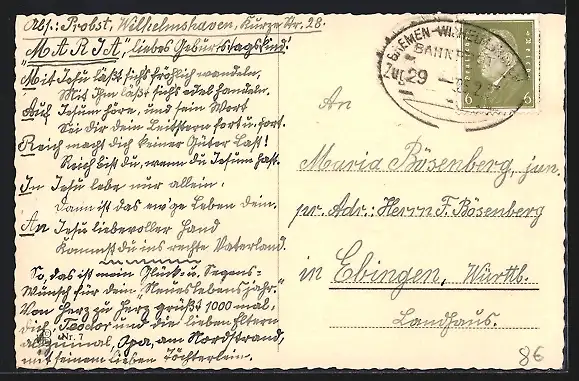 Abs.: Probst, Wilhelmshaven, Kurze Str. 28.
"MARIA", liebes Geburtstagskind!
Mit Jesu läßt sichs fröhlich wandeln,
Mit Ihm läßt sichs edel handeln.
Auf Jesum höre, und sein Wort
Sei dir dein Leitstern fort u. fort.
Reich macht dich keiner Güter Last!
Reich bist du, wenn du Jesum hast.
In Jesu lebe nur allein,
Dann ist das ew'ge Leben dein.
An Jesu liebevoller Hand
Kommst du ins rechte Vaterland.
So, das ist mein Glück- u. Segens-
Wunsch für dein "Neues Lebensjahr."
Von Herz zu Herz grüßt 1000 mal,
dich, Teodor und die lieben Eltern
Opa, am Nordstrand,
mit seinem lieben Töchterlein.
Nr. 7
BREMEN-WILHELMSHAVEN
BAHNPOST
Zug 29
6 6
An
Maria Bösenberg, jun.
pr. Adr.: Herrn F. Bösenberg
in Ebingen, Württb.
Landhaus.
86